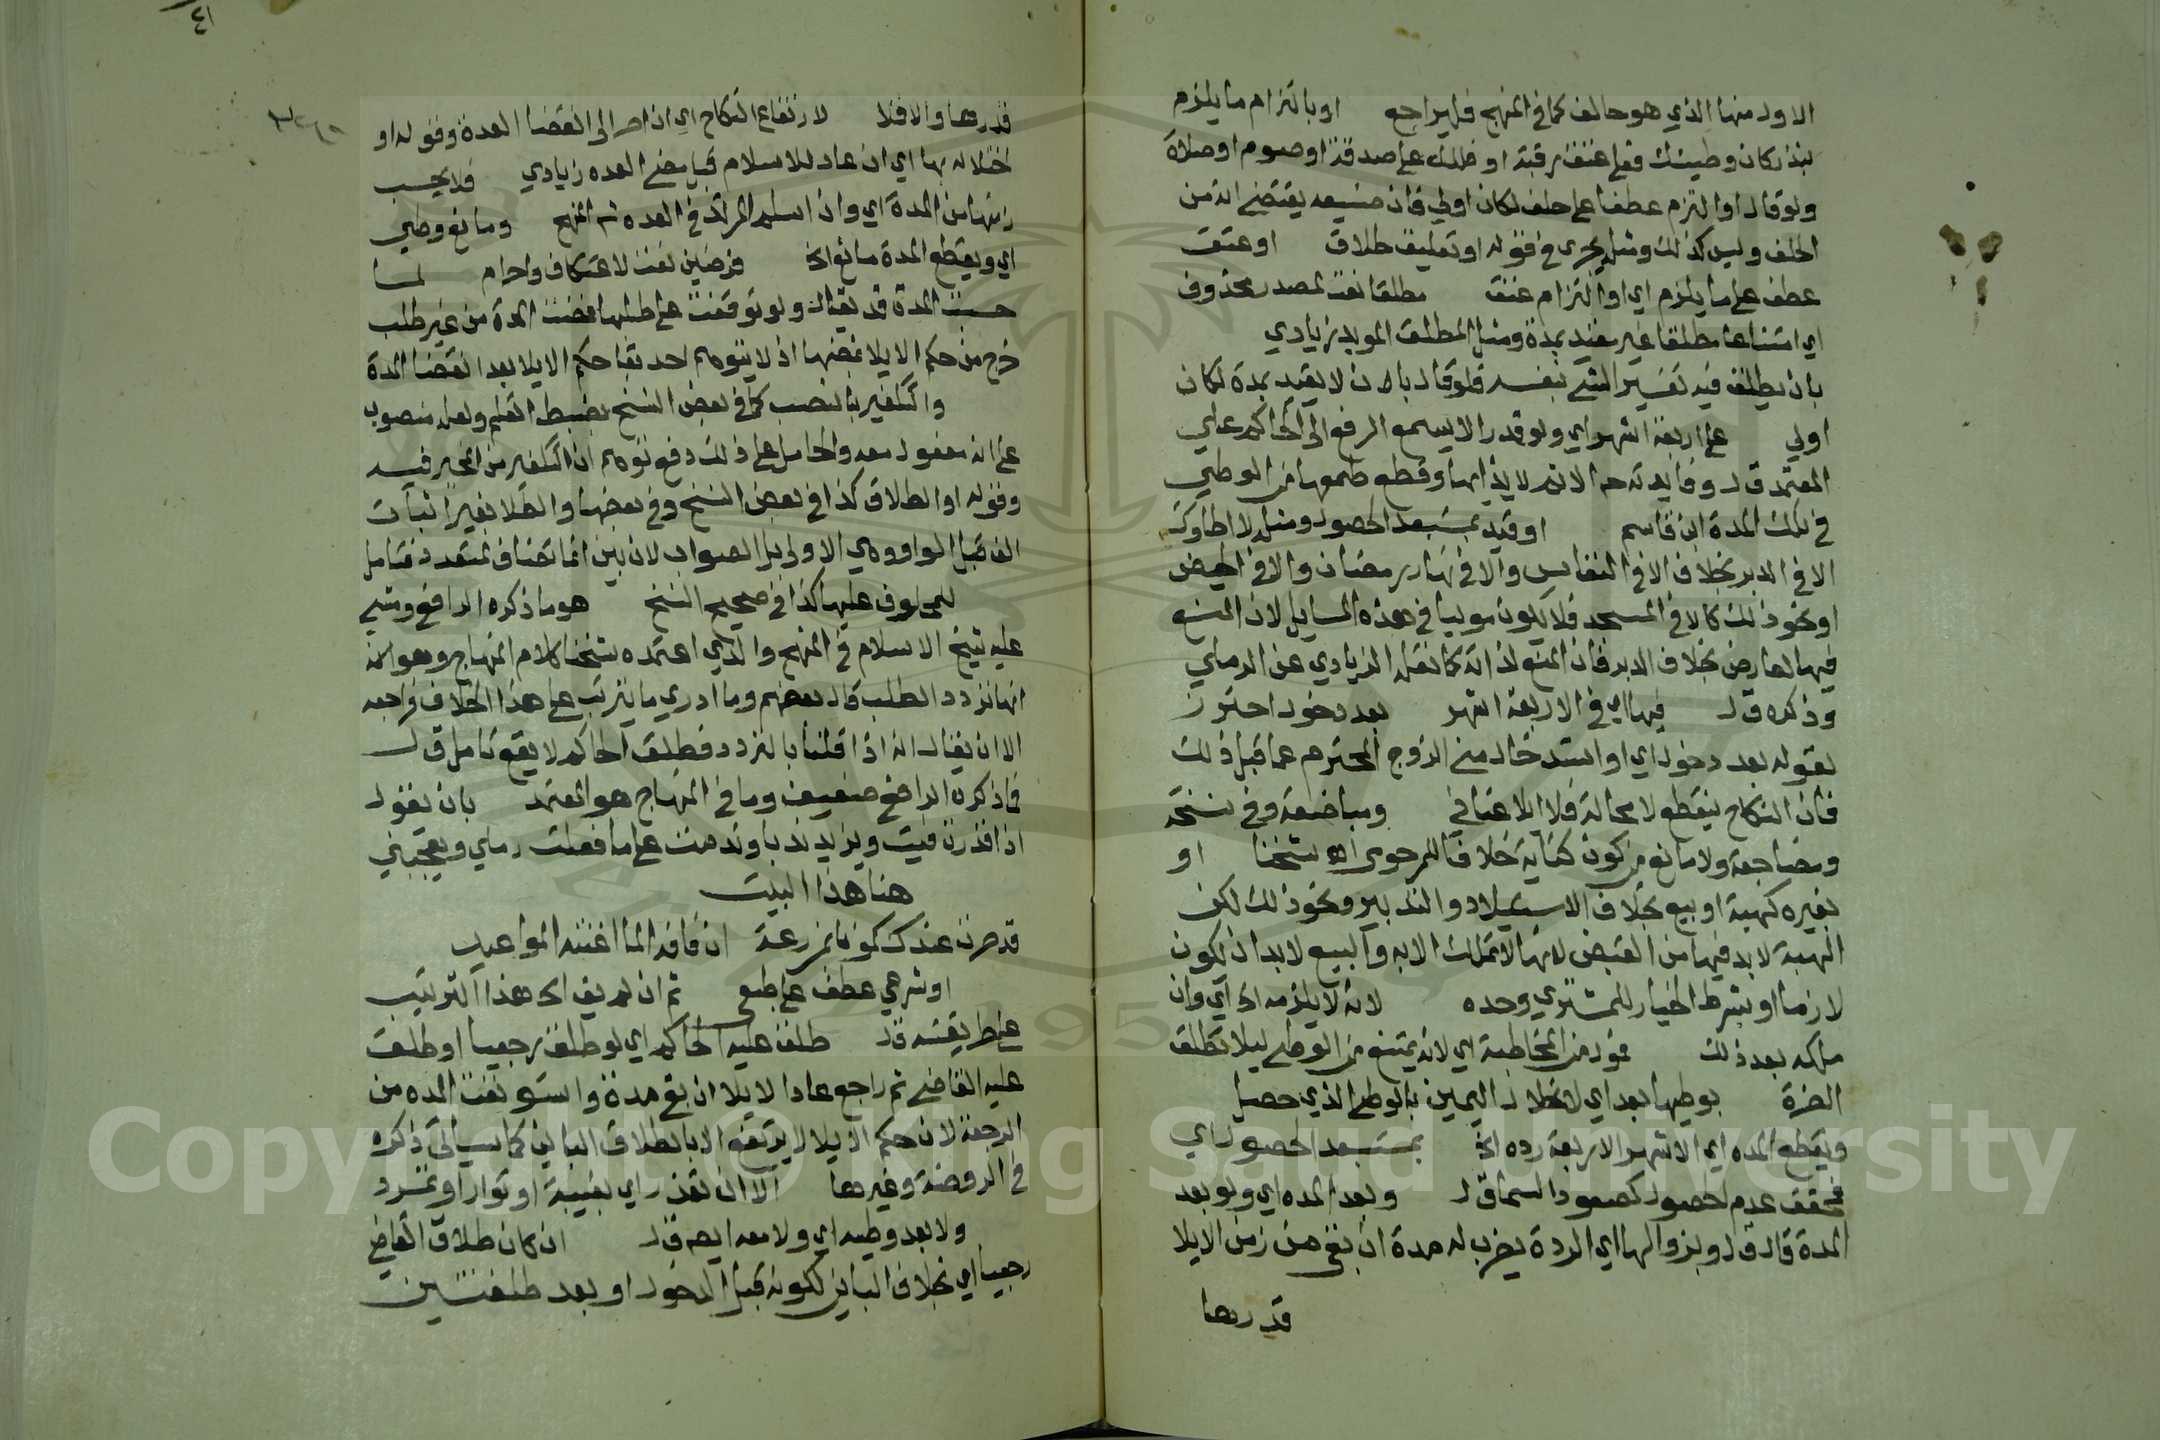 الاول منها الذي هو حالف كما في المنهج فليراجع او بالتزام ما يلزم
بنذر كان وطيتك فعلي عتق رقبة او فلله علي صدقة او صوم او صلاة
ولو قال او التزم عطفا على حلف لكان اولي فان صنيعه يقتضي انه من
الحلف وليس كذلك ومثله يجري في قوله او تعليق طلاق او عتق
عطف على ما يلزم اي او التزام عتق مطلقا نعت لمصدر محذوف
اي امتناعا مطلقا غير مقيد بمدة ومثل المطلق المويد زيادي
بان يطلق فيه تفسير الشي بنفسه فلو قال بان لا يقيد بمدة لكان
اولي على اربعة اشهر اي ولو قدر الا يسع الرفع الى الحاكم علي
المعتمد ق ل وفايدته ح الاثم لايذايها وقطع طمعها من الوطي
في تلك المدة ابن قاسم او قيد بمستبعد الحصول ومثل لا اطاوك
الا في الدبر بخلاف الا في النفاس والا في نهار رمضان والا في الحيض
او نحو ذلك كالا في المسجد فلا يكون موليا في هذه المسايل لان المنع
فيها لعارض بخلاف الدبر فان المنع لذاته كما نقله الزيادي عن الرملي
وذكره ق ل فيها اي في الاربعة اشهر بعد دخول احترز
بقوله بعد دخول اي او استدخال مني الزوج المحترم عما قبل ذلك
فان النكاح ينقطع لا محالة فلا ايلا عناني ومباضعة وفي نسخة
ومضاجعة ولا مانع من كون كناية خلافا للمرحومي اه شيخنا او
بغيره كهبة او بيع بخلاف الاستيلاد والتدبير ونحو ذلك لكن
الهبة لا بد فيها من القبض لانها لا تملك الا به والبيع لا بد ان يكون
لازما او بشرط الخيار للمشتري وحده لانه لا يلزمه الخ اي وان
ملكه بعد ذلك من المخاطبة اي لانه يمتنع من الوطي ليلا تطلق
الضرة بوطيها بعد اي لانحلال اليمين بالوطي الذي حصل
ويقطع المدة اي الاشهر الاربعة رده الخ بمستبعد الحصول اي
محقق عدم الحصول كصعود السما ق ل وبعد المده اي ولو بعد
المدة قال ق ل وبزوالها اي الردة يضرب له مدة ان بقي من زمن الايلا
قدرها
٤١
قدرها والا فلا لارتفاع النكاح اي اذا اصر الى انقضا العدة وقوله او
اختلاله بها اي ان عاد للاسلام قبل مضي العده زيادي فلا يحسب
زمنها من المدة اي وان اسلم المرتد في العده شرح المنهج ومانع وطي
اي ويقطع المدة مانع الخ فرضين نعت لاعتكاف واحرام لما
حسبت المدة قد يقال ولو توقفت على طلبها فمضت المدة من غير طلب
خرج من حكم الايلا بمضيها اذ لا يتوهم احد بقا حكم الايلا بعد انقضا المدة
والتكفير بالنصب كما في بعض النسخ بضبط القلم ولعله منصوب
على انه مفعول معه والحامل على ذلك دفع توهم ان التكفير من المخير فيه
وقوله او الطلاق كذا في بعض النسخ وفي بعضها والطلاق بغير اثبات
الف قبل الواو وهي الاولى بل الصواب لان بين انما تضاف لمتعدد فتامل
عليها كذا في صحيح النسخ هو ما ذكره الرافعي ومشي
عليه شيخ الاسلام في المنهج والذي اعتمده شيخنا كلام المنهاج وهو انه
انها تردد الطلب قال بعضهم وما ادري ما يترتب على هذا الخلاف فراجعه
الا ان يقال انه اذا قلنا بالتردد فطلق الحاكم لا يقع تامل ق ل
فما ذكره الرافعي ضعيف وما في المنهاج هو المعتمد بان يقول
اذا قدرت فيت ويزيد ندبا وندمت على ما فعلت رملي ويعجبني
هنا هذا البيت
قد صرت عندك كمونا بمزرعة ان فاته الما اغنته المواعيد
او شرعي عطف على طبعي ثم ان لم يف الخ هذا الترتيب
على طريقته ق ل طلق عليه الحاكم اي لو طلق رجعيا او طلق
عليه القاضي ثم راجع عاد الايلا ان بقي مدة واستونفت المده من
الرجعة لان حكم الايلا لا يرتفع الا بالطلاق الباين كما سياتي ذكره
في الروضة وغيرها الا ان تعذر اي بغيبة او توار او تمرد
ولا بعد وطيه اي ولا معه ايضه ق ل ان كان طلاق القاضي
رجعيا اي بخلاف الباين لكونه قبل الدخول او بعد طلقتين
Copyright © King Saud University